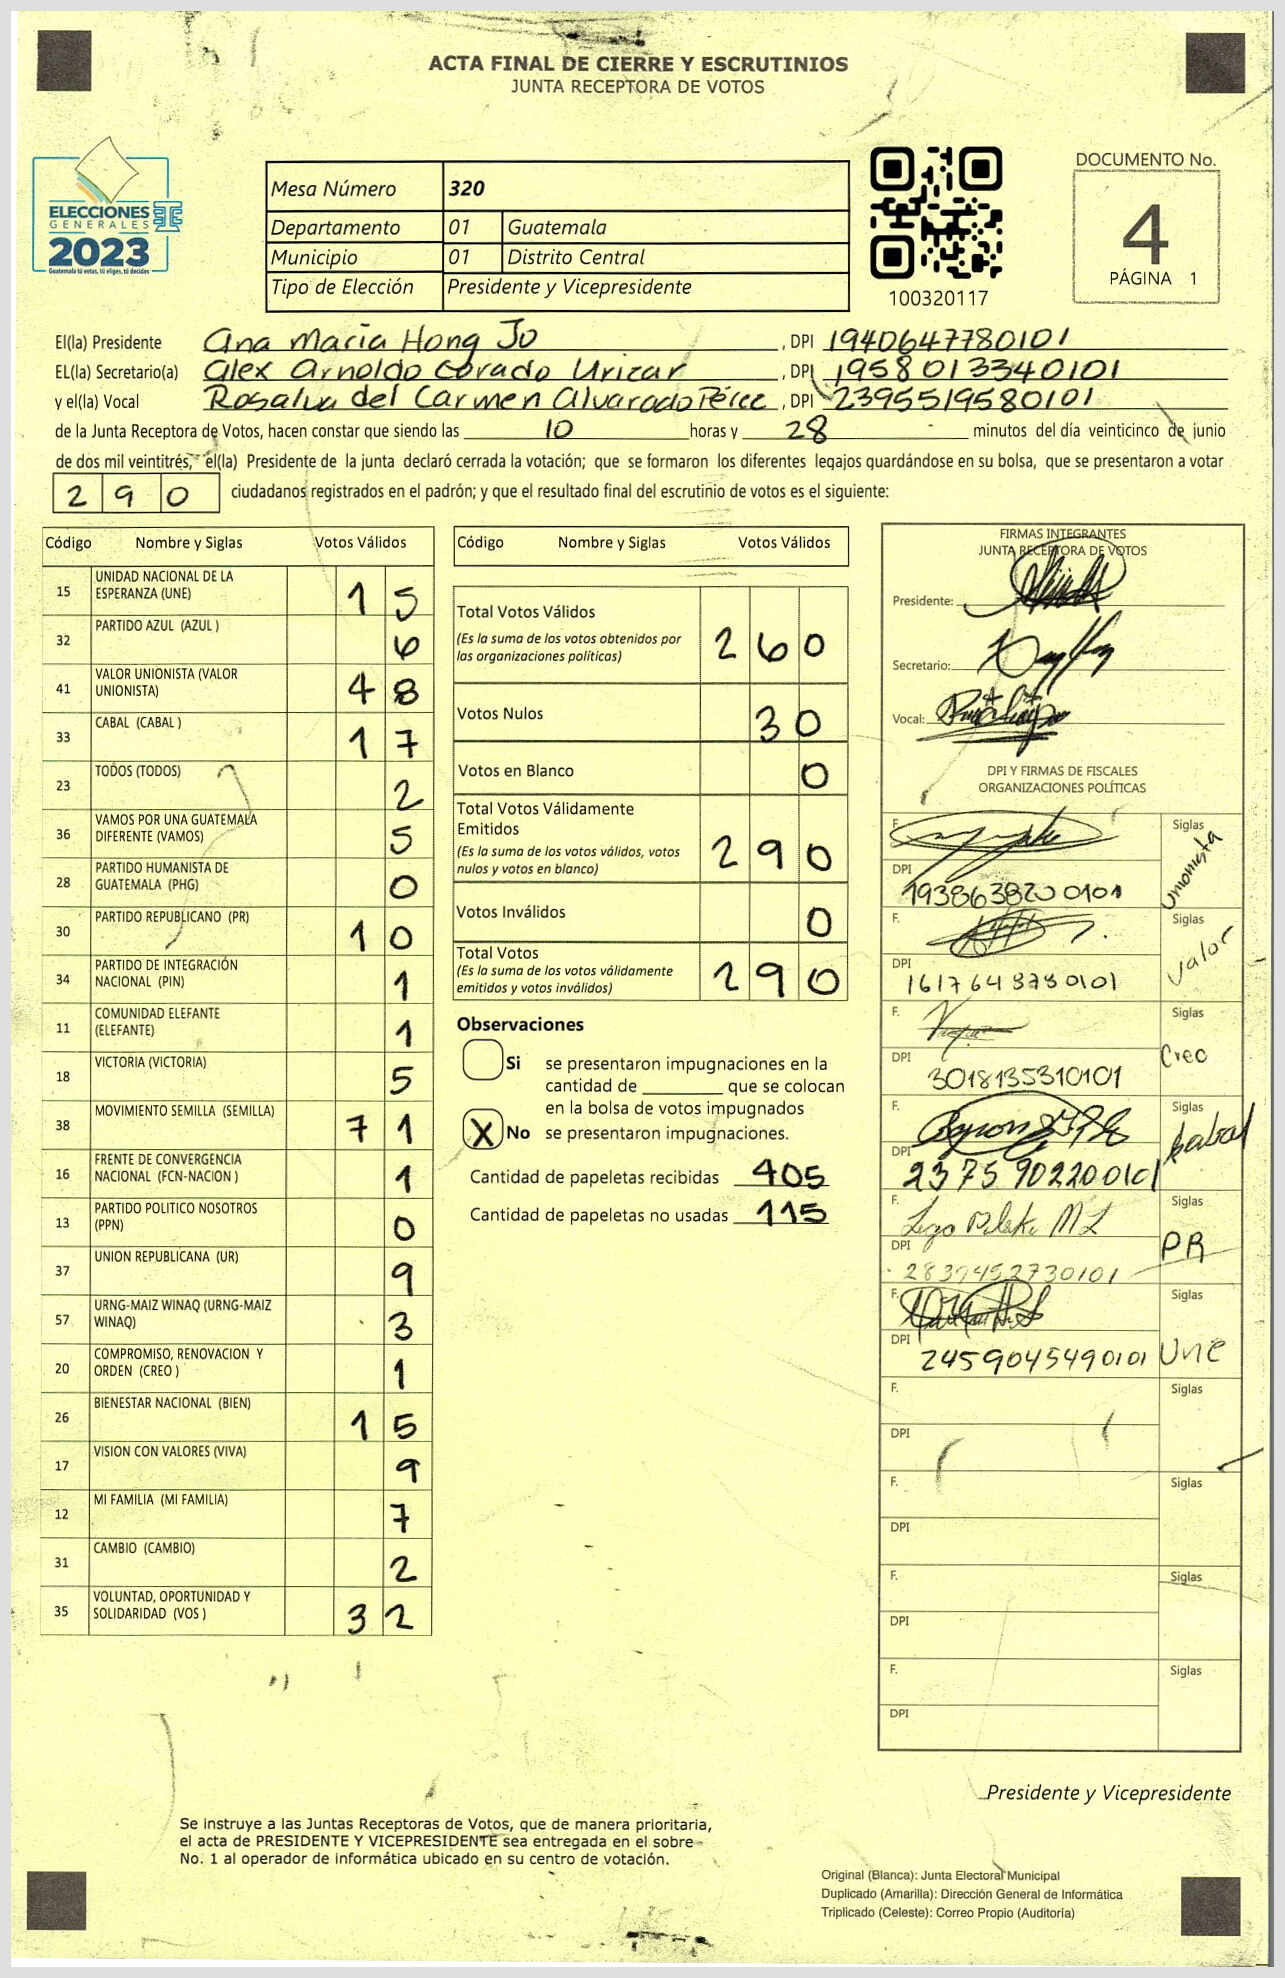 ACTA FINAL DE CIERRE Y ESCRUTINIOS
JUNTA RECEPTORA DE VOTOS
ELECCIONES
GENERALES
2023
Guatemala tú votas, tú eliges, tú decides
Mesa Número 320
Departamento 01 Guatemala
Municipio 01 Distrito Central
Tipo de Elección Presidente y Vicepresidente
100320117
DOCUMENTO No.
4
PÁGINA 1
El(la) Presidente Ana Maria Hong Jo, DPI 1940647780101
EL(la) Secretario(a) Alex Arnoldo Corado Urizar, DPI 1958013340101
y el(la) Vocal Rosalva del Carmen Alvarado Pérez, DPI 2395519580101
de la Junta Receptora de Votos, hacen constar que siendo las 10 horas y 28 minutos del día veinticinco de junio
de dos mil veintitrés, el(la) Presidente de la junta declaró cerrada la votación; que se formaron los diferentes legajos guardándose en su bolsa, que se presentaron a votar
290 ciudadanos registrados en el padrón; y que el resultado final del escrutinio de votos es el siguiente:
Código Nombre y Siglas Votos Válidos
15 UNIDAD NACIONAL DE LA ESPERANZA (UNE) 15
32 PARTIDO AZUL (AZUL ) 6
41 VALOR UNIONISTA (VALOR UNIONISTA) 48
33 CABAL (CABAL ) 17
23 TODOS (TODOS) 2
36 VAMOS POR UNA GUATEMALA DIFERENTE (VAMOS) 5
28 PARTIDO HUMANISTA DE GUATEMALA (PHG) 0
30 PARTIDO REPUBLICANO (PR) 10
34 PARTIDO DE INTEGRACIÓN NACIONAL (PIN) 1
11 COMUNIDAD ELEFANTE (ELEFANTE) 1
18 VICTORIA (VICTORIA) 5
38 MOVIMIENTO SEMILLA (SEMILLA) 71
16 FRENTE DE CONVERGENCIA NACIONAL (FCN-NACION ) 1
13 PARTIDO POLITICO NOSOTROS (PPN) 0
37 UNION REPUBLICANA (UR) 9
57 URNG-MAIZ WINAQ (URNG-MAIZ WINAQ) 3
20 COMPROMISO, RENOVACION Y ORDEN (CREO ) 1
26 BIENESTAR NACIONAL (BIEN) 15
17 VISION CON VALORES (VIVA) 9
12 MI FAMILIA (MI FAMILIA) 7
31 CAMBIO (CAMBIO) 2
35 VOLUNTAD, OPORTUNIDAD Y SOLIDARIDAD (VOS ) 32
Código Nombre y Siglas Votos Válidos
Total Votos Válidos 260
(Es la suma de los votos obtenidos por
las organizaciones políticas)
Votos Nulos 30
Votos en Blanco 0
Total Votos Válidamente
Emitidos 290
(Es la suma de los votos válidos, votos
nulos y votos en blanco)
Votos Inválidos 0
Total Votos 290
(Es la suma de los votos válidamente
emitidos y votos inválidos)
Observaciones
Si se presentaron impugnaciones en la
cantidad de ________ que se colocan
en la bolsa de votos impugnados
X No se presentaron impugnaciones.
Cantidad de papeletas recibidas 405
Cantidad de papeletas no usadas 115
FIRMAS INTEGRANTES
JUNTA RECEPTORA DE VOTOS
Presidente:
Secretario:
Vocal:
DPI Y FIRMAS DE FISCALES
ORGANIZACIONES POLÍTICAS
F. Siglas Unionista
DPI 1938638200101
F. Siglas Valor
DPI 1617648780101
F. Siglas Creo
DPI 3018135310101
F. Siglas
DPI 2375902200101
F. Siglas PR
DPI 2839452730101
F. Siglas Une
DPI 2459045490101
F. Siglas
DPI
F. Siglas
DPI
F. Siglas
DPI
F. Siglas
DPI
Presidente y Vicepresidente
Se instruye a las Juntas Receptoras de Votos, que de manera prioritaria,
el acta de PRESIDENTE Y VICEPRESIDENTE sea entregada en el sobre
No. 1 al operador de informática ubicado en su centro de votación.
Original (Blanca): Junta Electoral Municipal
Duplicado (Amarilla): Dirección General de Informática
Triplicado (Celeste): Correo Propio (Auditoría)